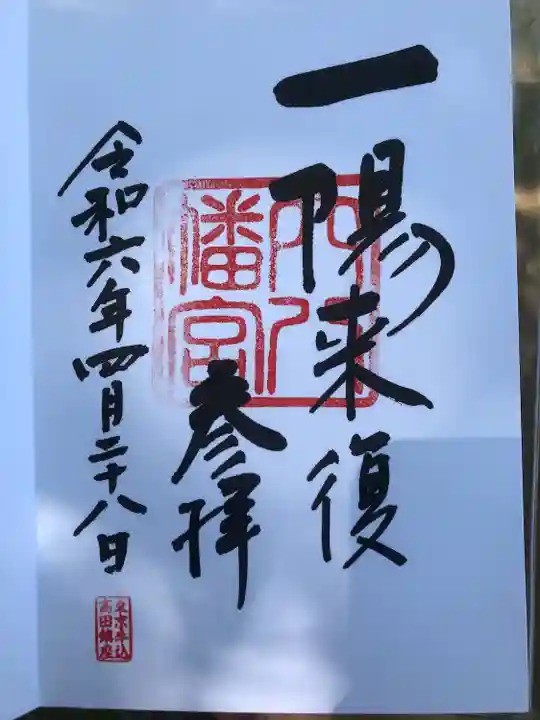 一陽来復
穴八
幡宮
参拝
令和六年四月二十八日
東京牛込
高田鎮座